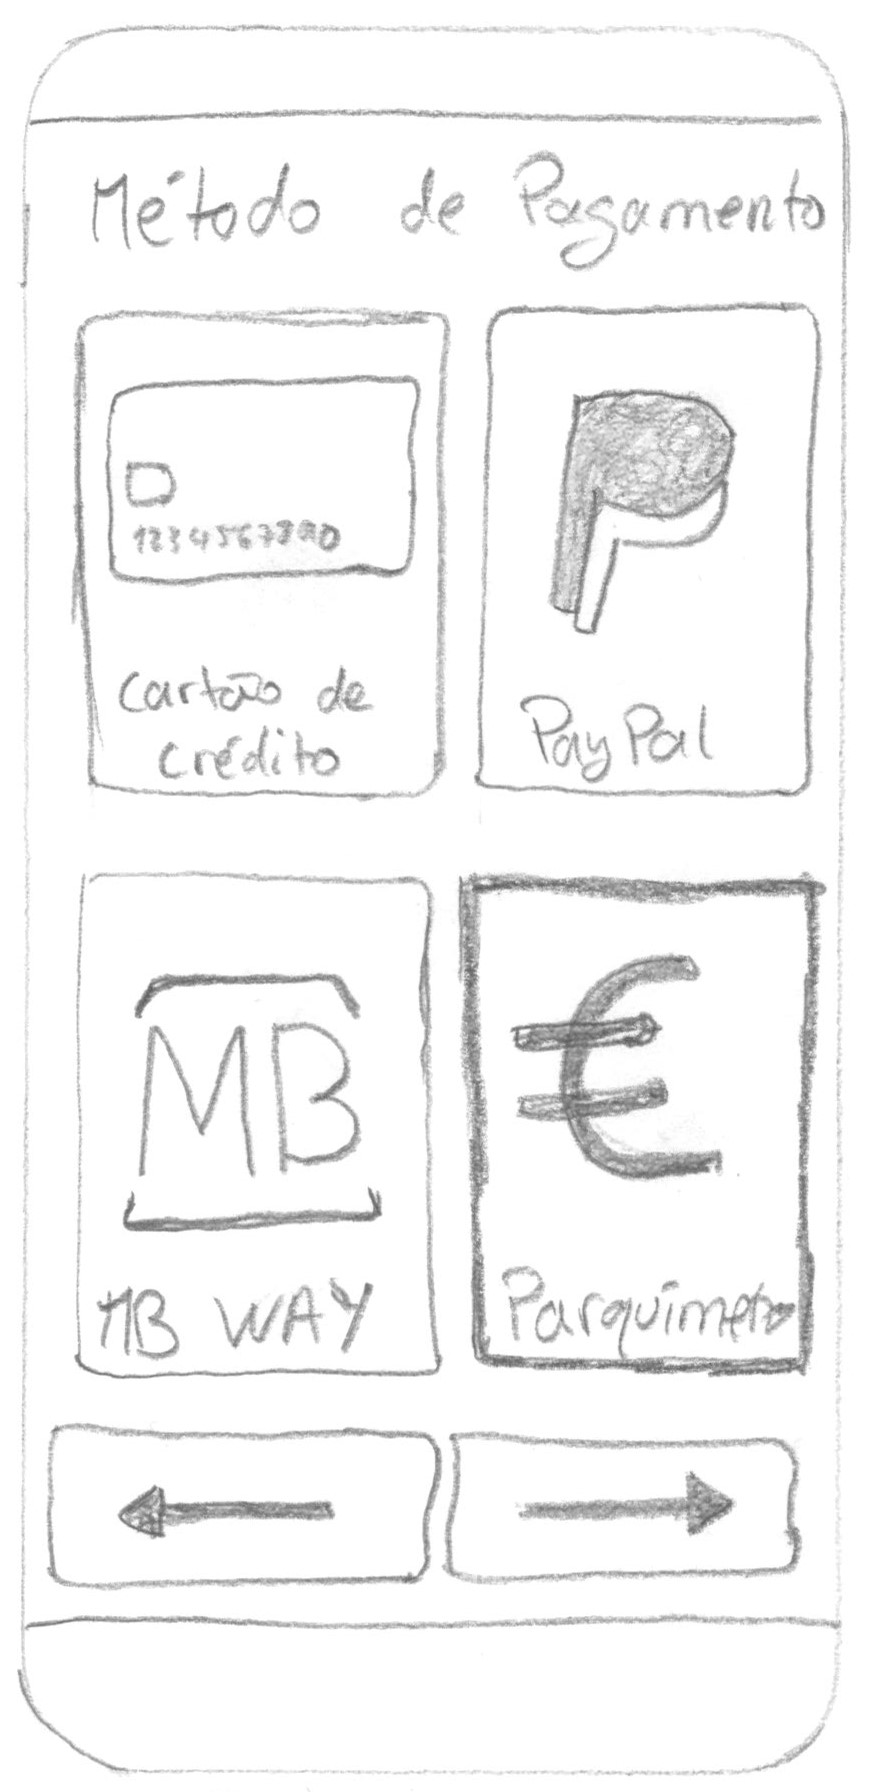 Método de Pagamento
1234567890
Cartão de
crédito
PayPal
MB
MB WAY
€
Parquímetro